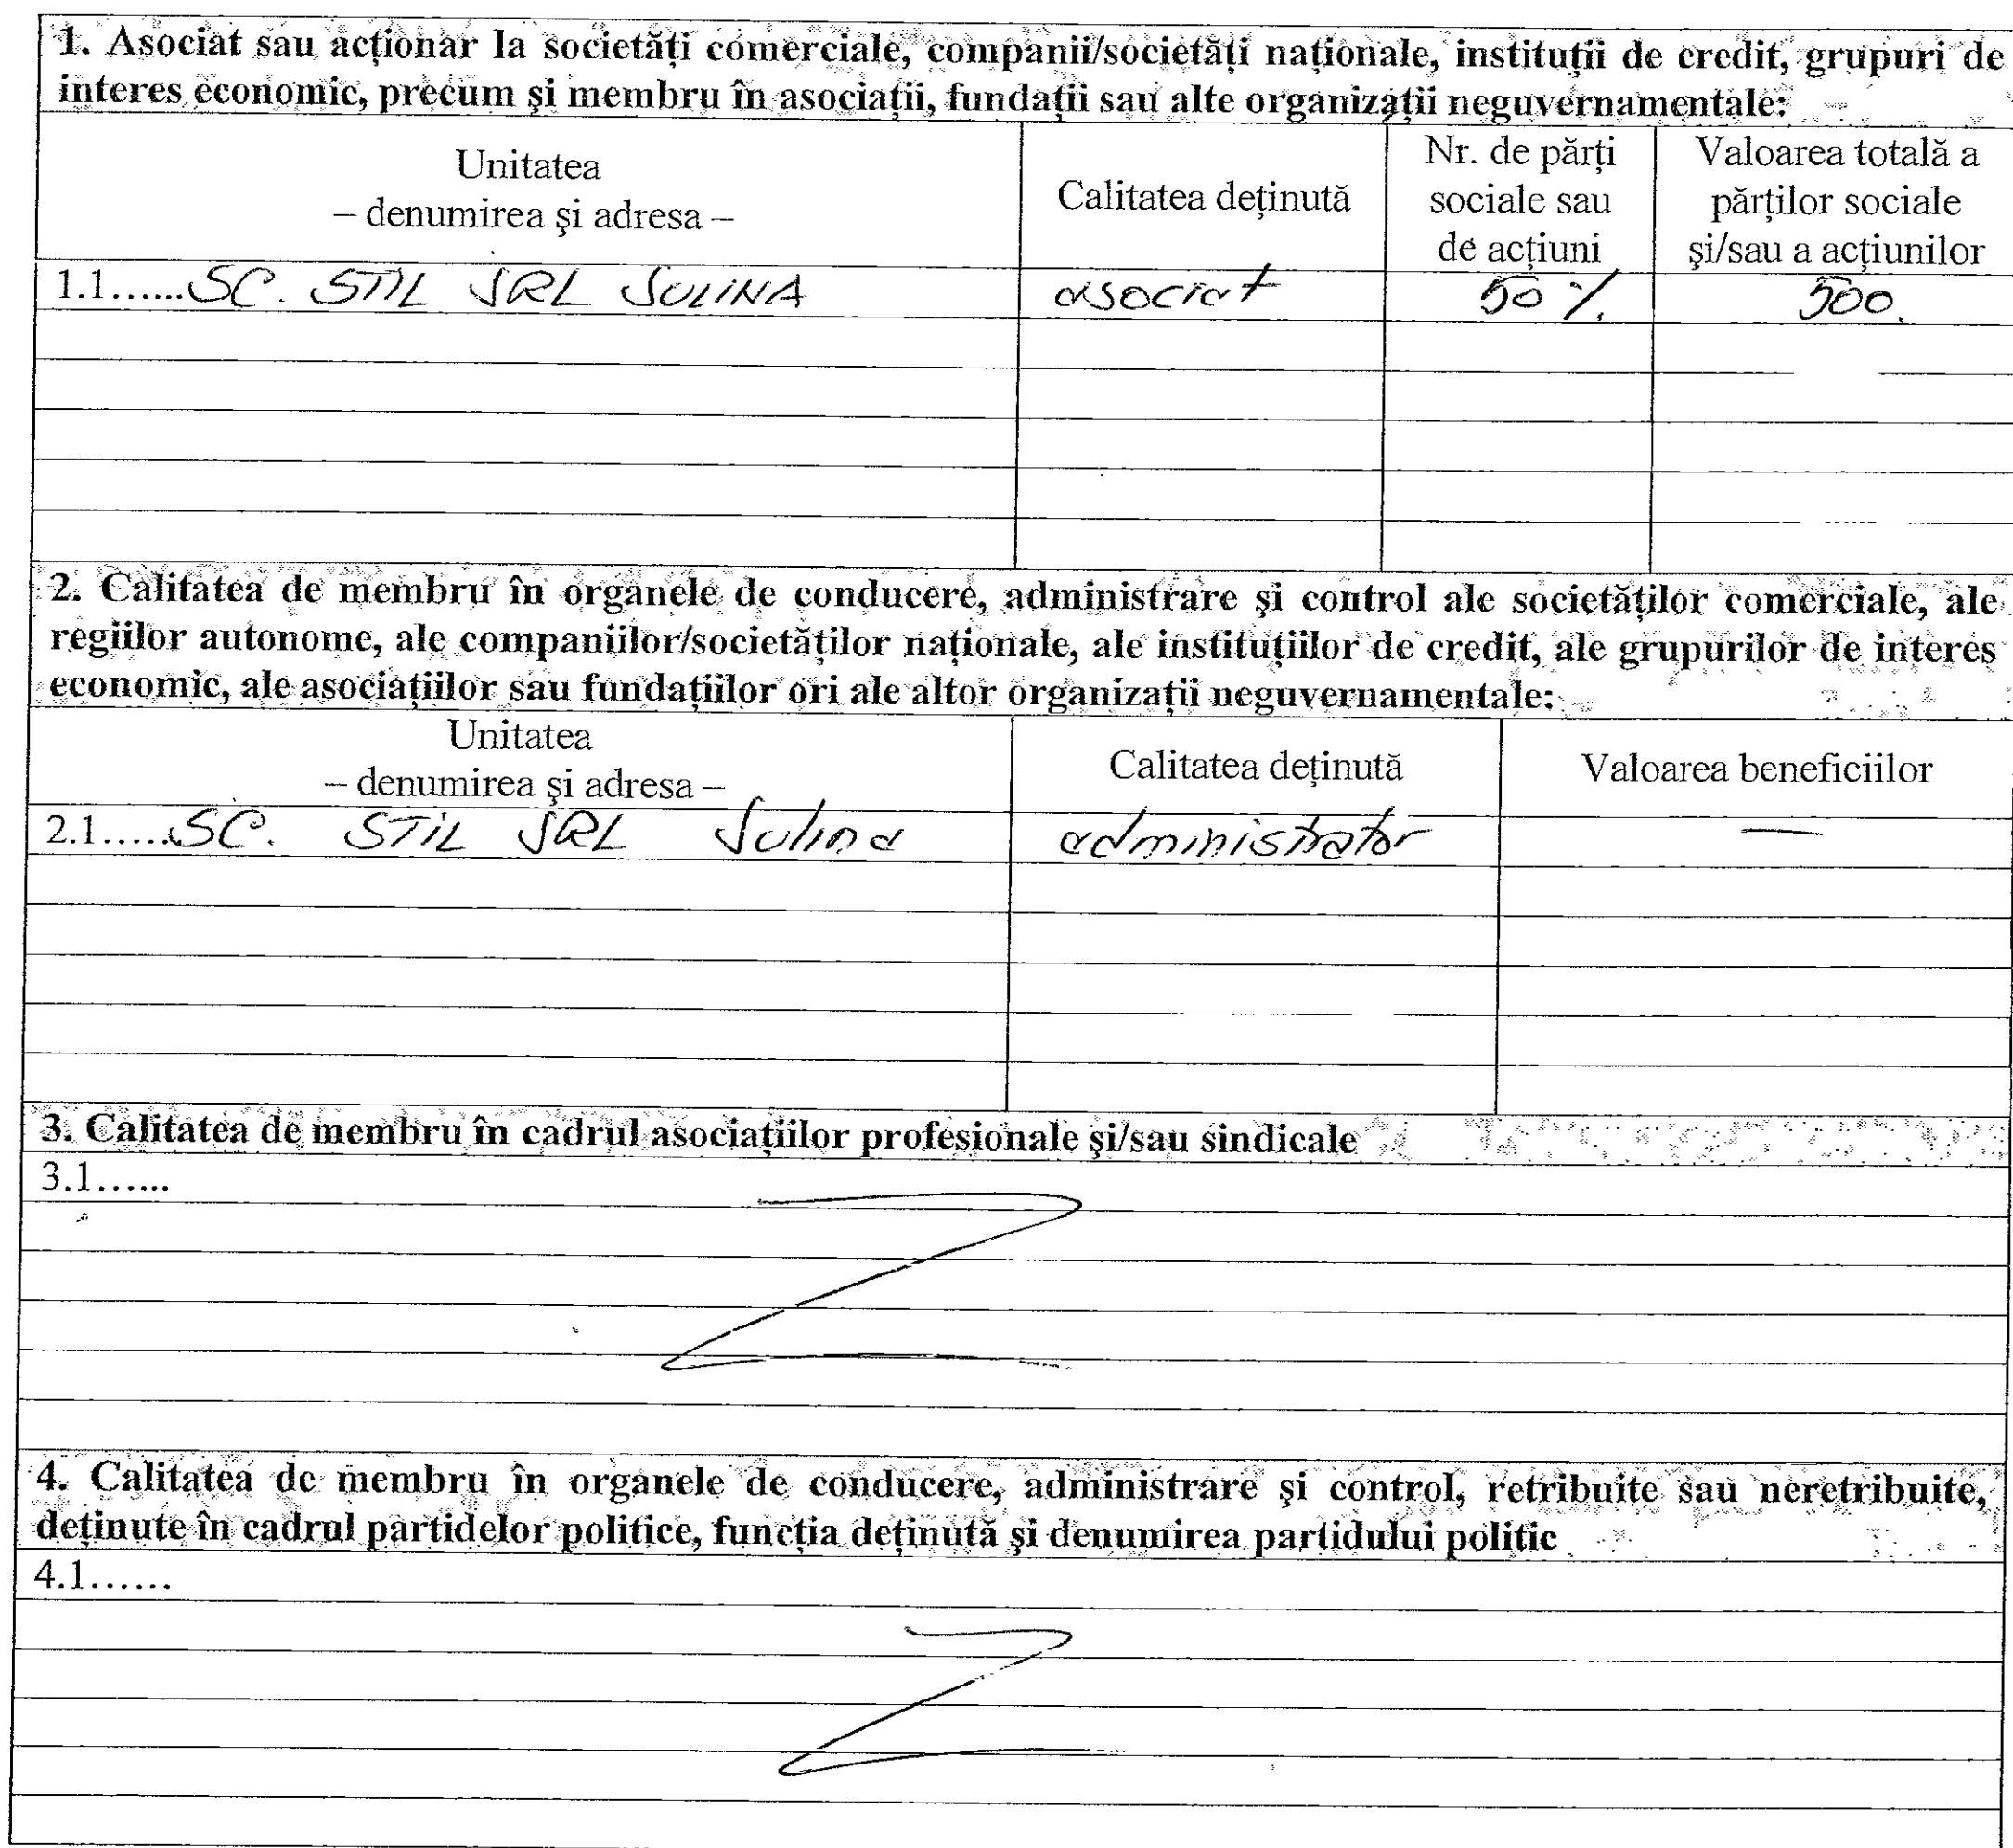 1. Asociat sau acţionar la societăţi comerciale, companii/societăţi naţionale, instituţii de credit, grupuri de
interes economic, precum şi membru în asociaţii, fundaţii sau alte organizaţii neguvernamentale:
Unitatea
– denumirea şi adresa –
Calitatea deţinută
Nr. de părţi
sociale sau
de acţiuni
Valoarea totală a
părţilor sociale
şi/sau a acţiunilor
1.1......SC. STIL SRL SULINA asociat 50 % 500.
2. Calitatea de membru în organele de conducere, administrare şi control ale societăţilor comerciale, ale
regiilor autonome, ale companiilor/societăţilor naţionale, ale instituţiilor de credit, ale grupurilor de interes
economic, ale asociaţiilor sau fundaţiilor ori ale altor organizaţii neguvernamentale:
Unitatea
– denumirea şi adresa –
Calitatea deţinută
Valoarea beneficiilor
2.1......SC. STIL SRL Sulina administrator —
3. Calitatea de membru în cadrul asociaţiilor profesionale şi/sau sindicale
3.1......
4. Calitatea de membru în organele de conducere, administrare şi control, retribuite sau neretribuite,
deţinute în cadrul partidelor politice, funcţia deţinută şi denumirea partidului politic
4.1......